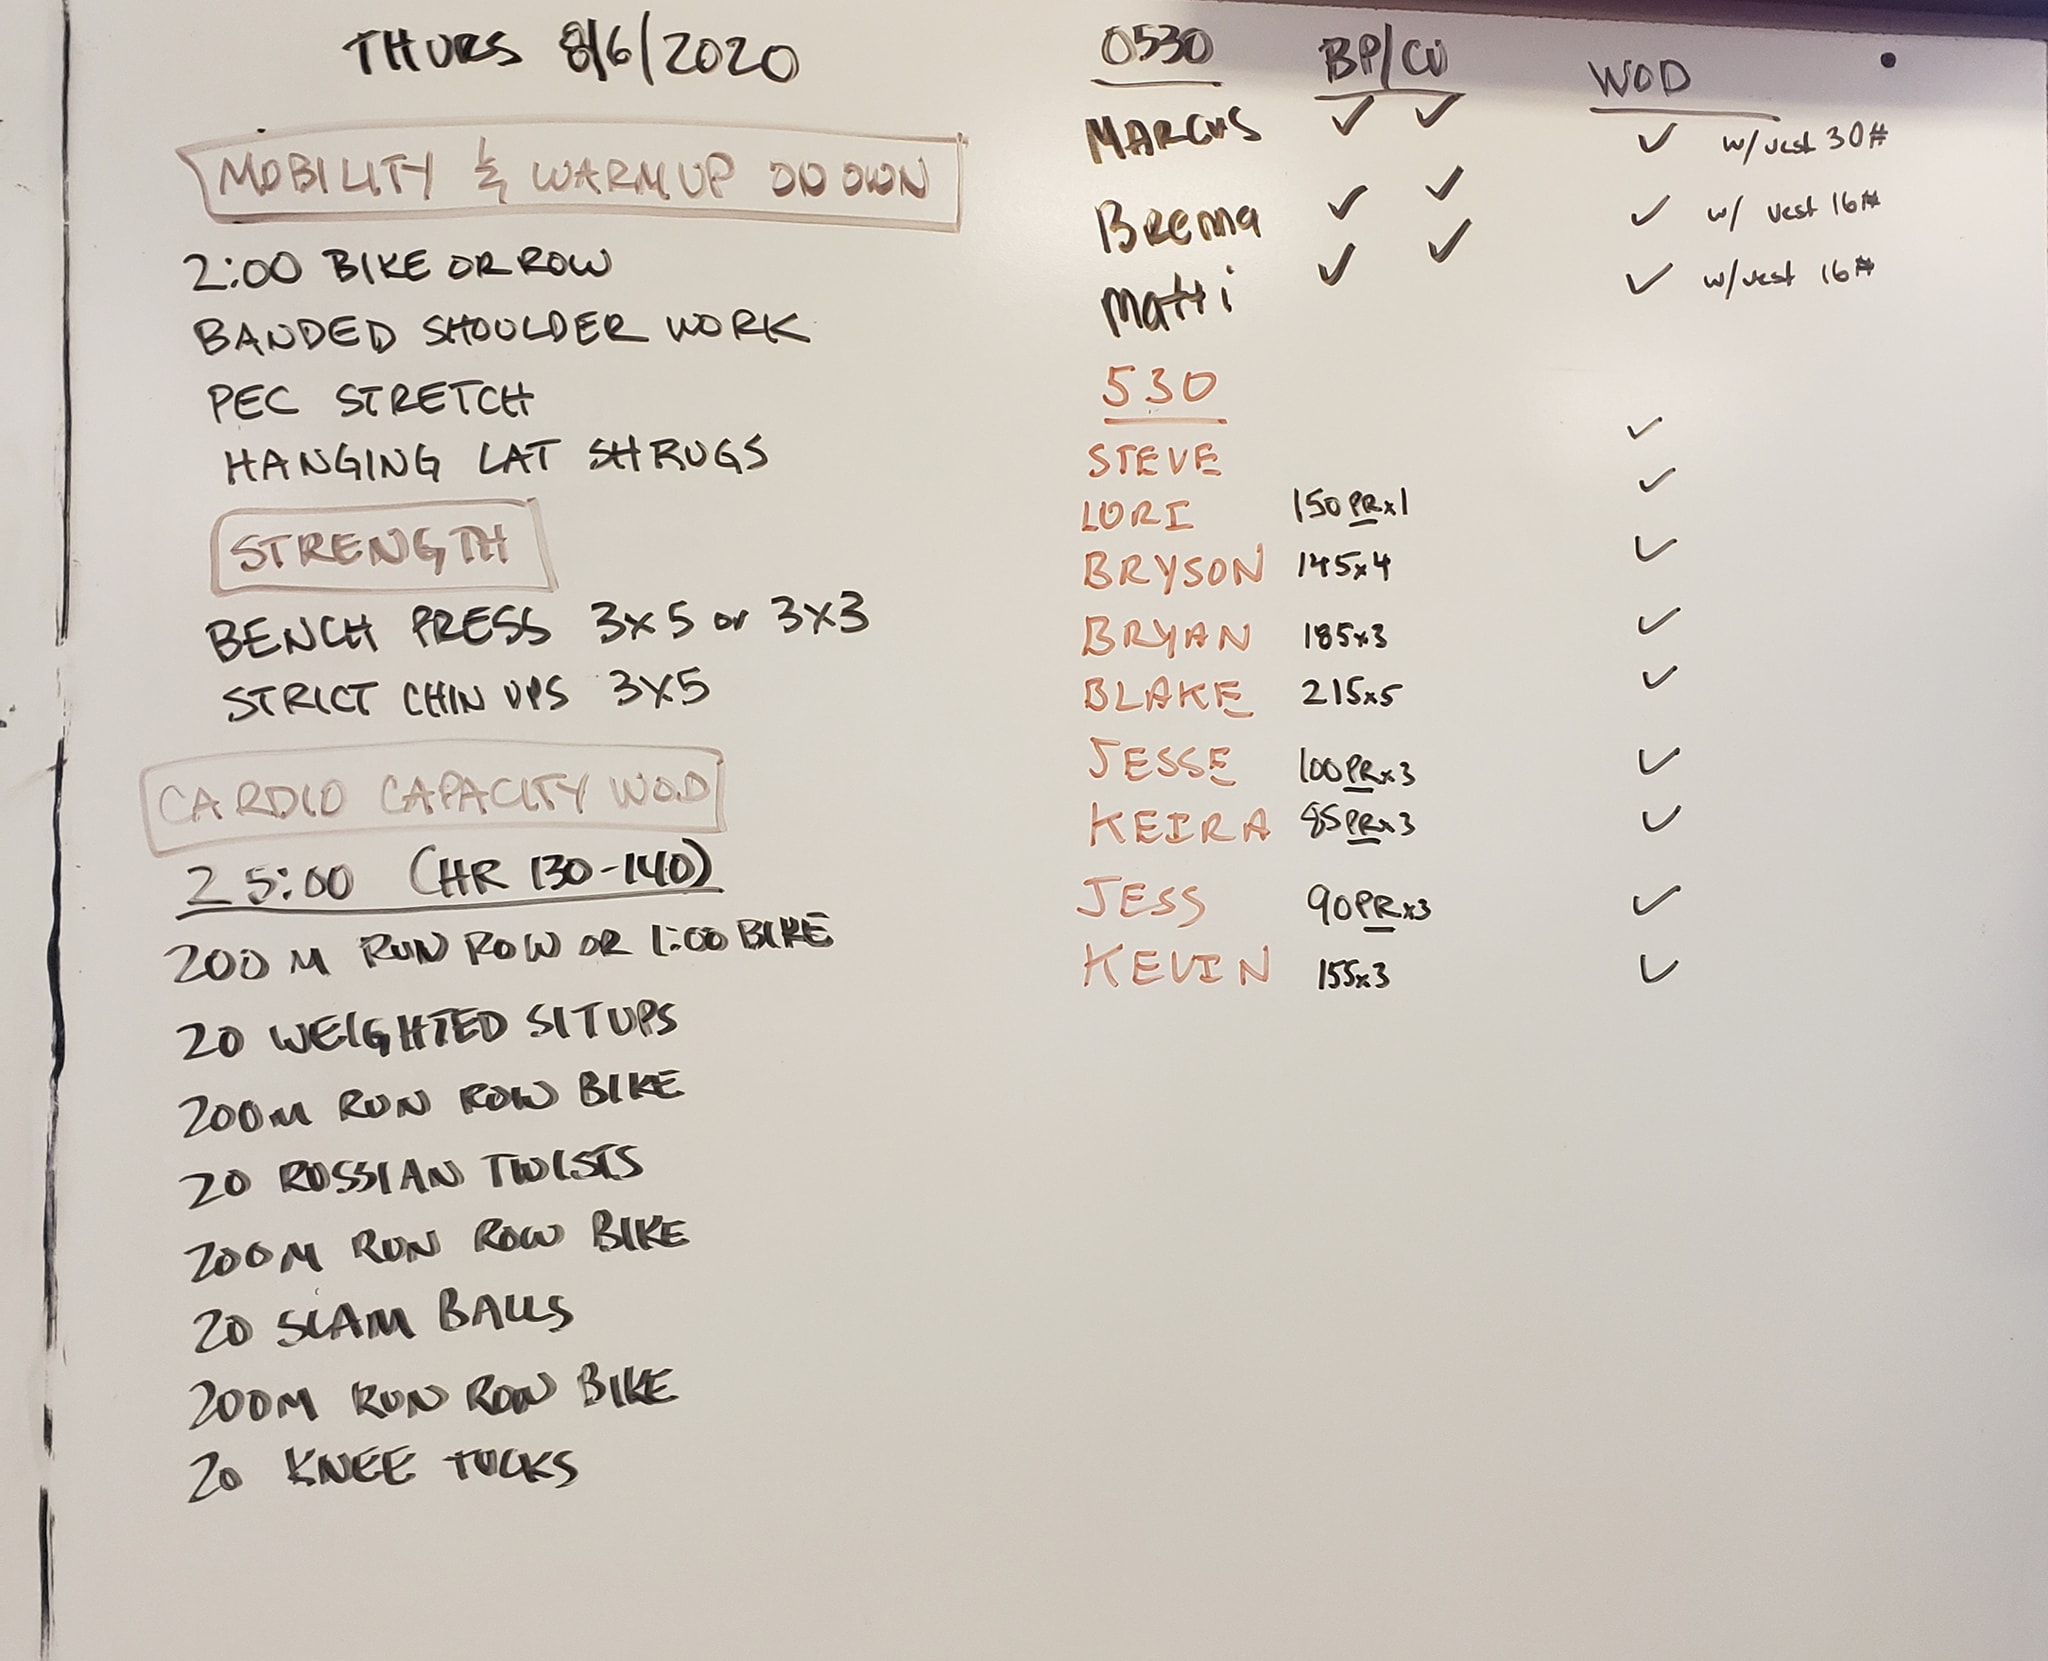 THURS 8/6/2020
MOBILITY & WARMUP ON OWN
2:00 BIKE OR ROW
BANDED SHOULDER WORK
PEC STRETCH
HANGING LAT SHRUGS
STRENGTH
BENCH PRESS 3x5 or 3x3
STRICT CHIN UPS 3x5
CARDIO CAPACITY WOD
25:00 (HR 130-140)
200 M RUN ROW OR 1:00 BIKE
20 WEIGHTED SITUPS
200M RUN ROW BIKE
20 RUSSIAN TWISTS
200M RUN ROW BIKE
20 SLAM BALLS
200M RUN ROW BIKE
20 KNEE TUCKS
0530 BP/CU WOD
MARCUS ✓ ✓ ✓ w/vest 30#
Brenna ✓ ✓ ✓ w/ vest 16#
Matti ✓ ✓ ✓ w/vest 16#
530
STEVE ✓
LORI 150 PR x1 ✓
BRYSON 145x4 ✓
BRYAN 185x3 ✓
BLAKE 215x5 ✓
JESSE 100 PR x3 ✓
KEIRA 85 PR x3 ✓
JESS 90 PR x3 ✓
KEVIN 155x3 ✓